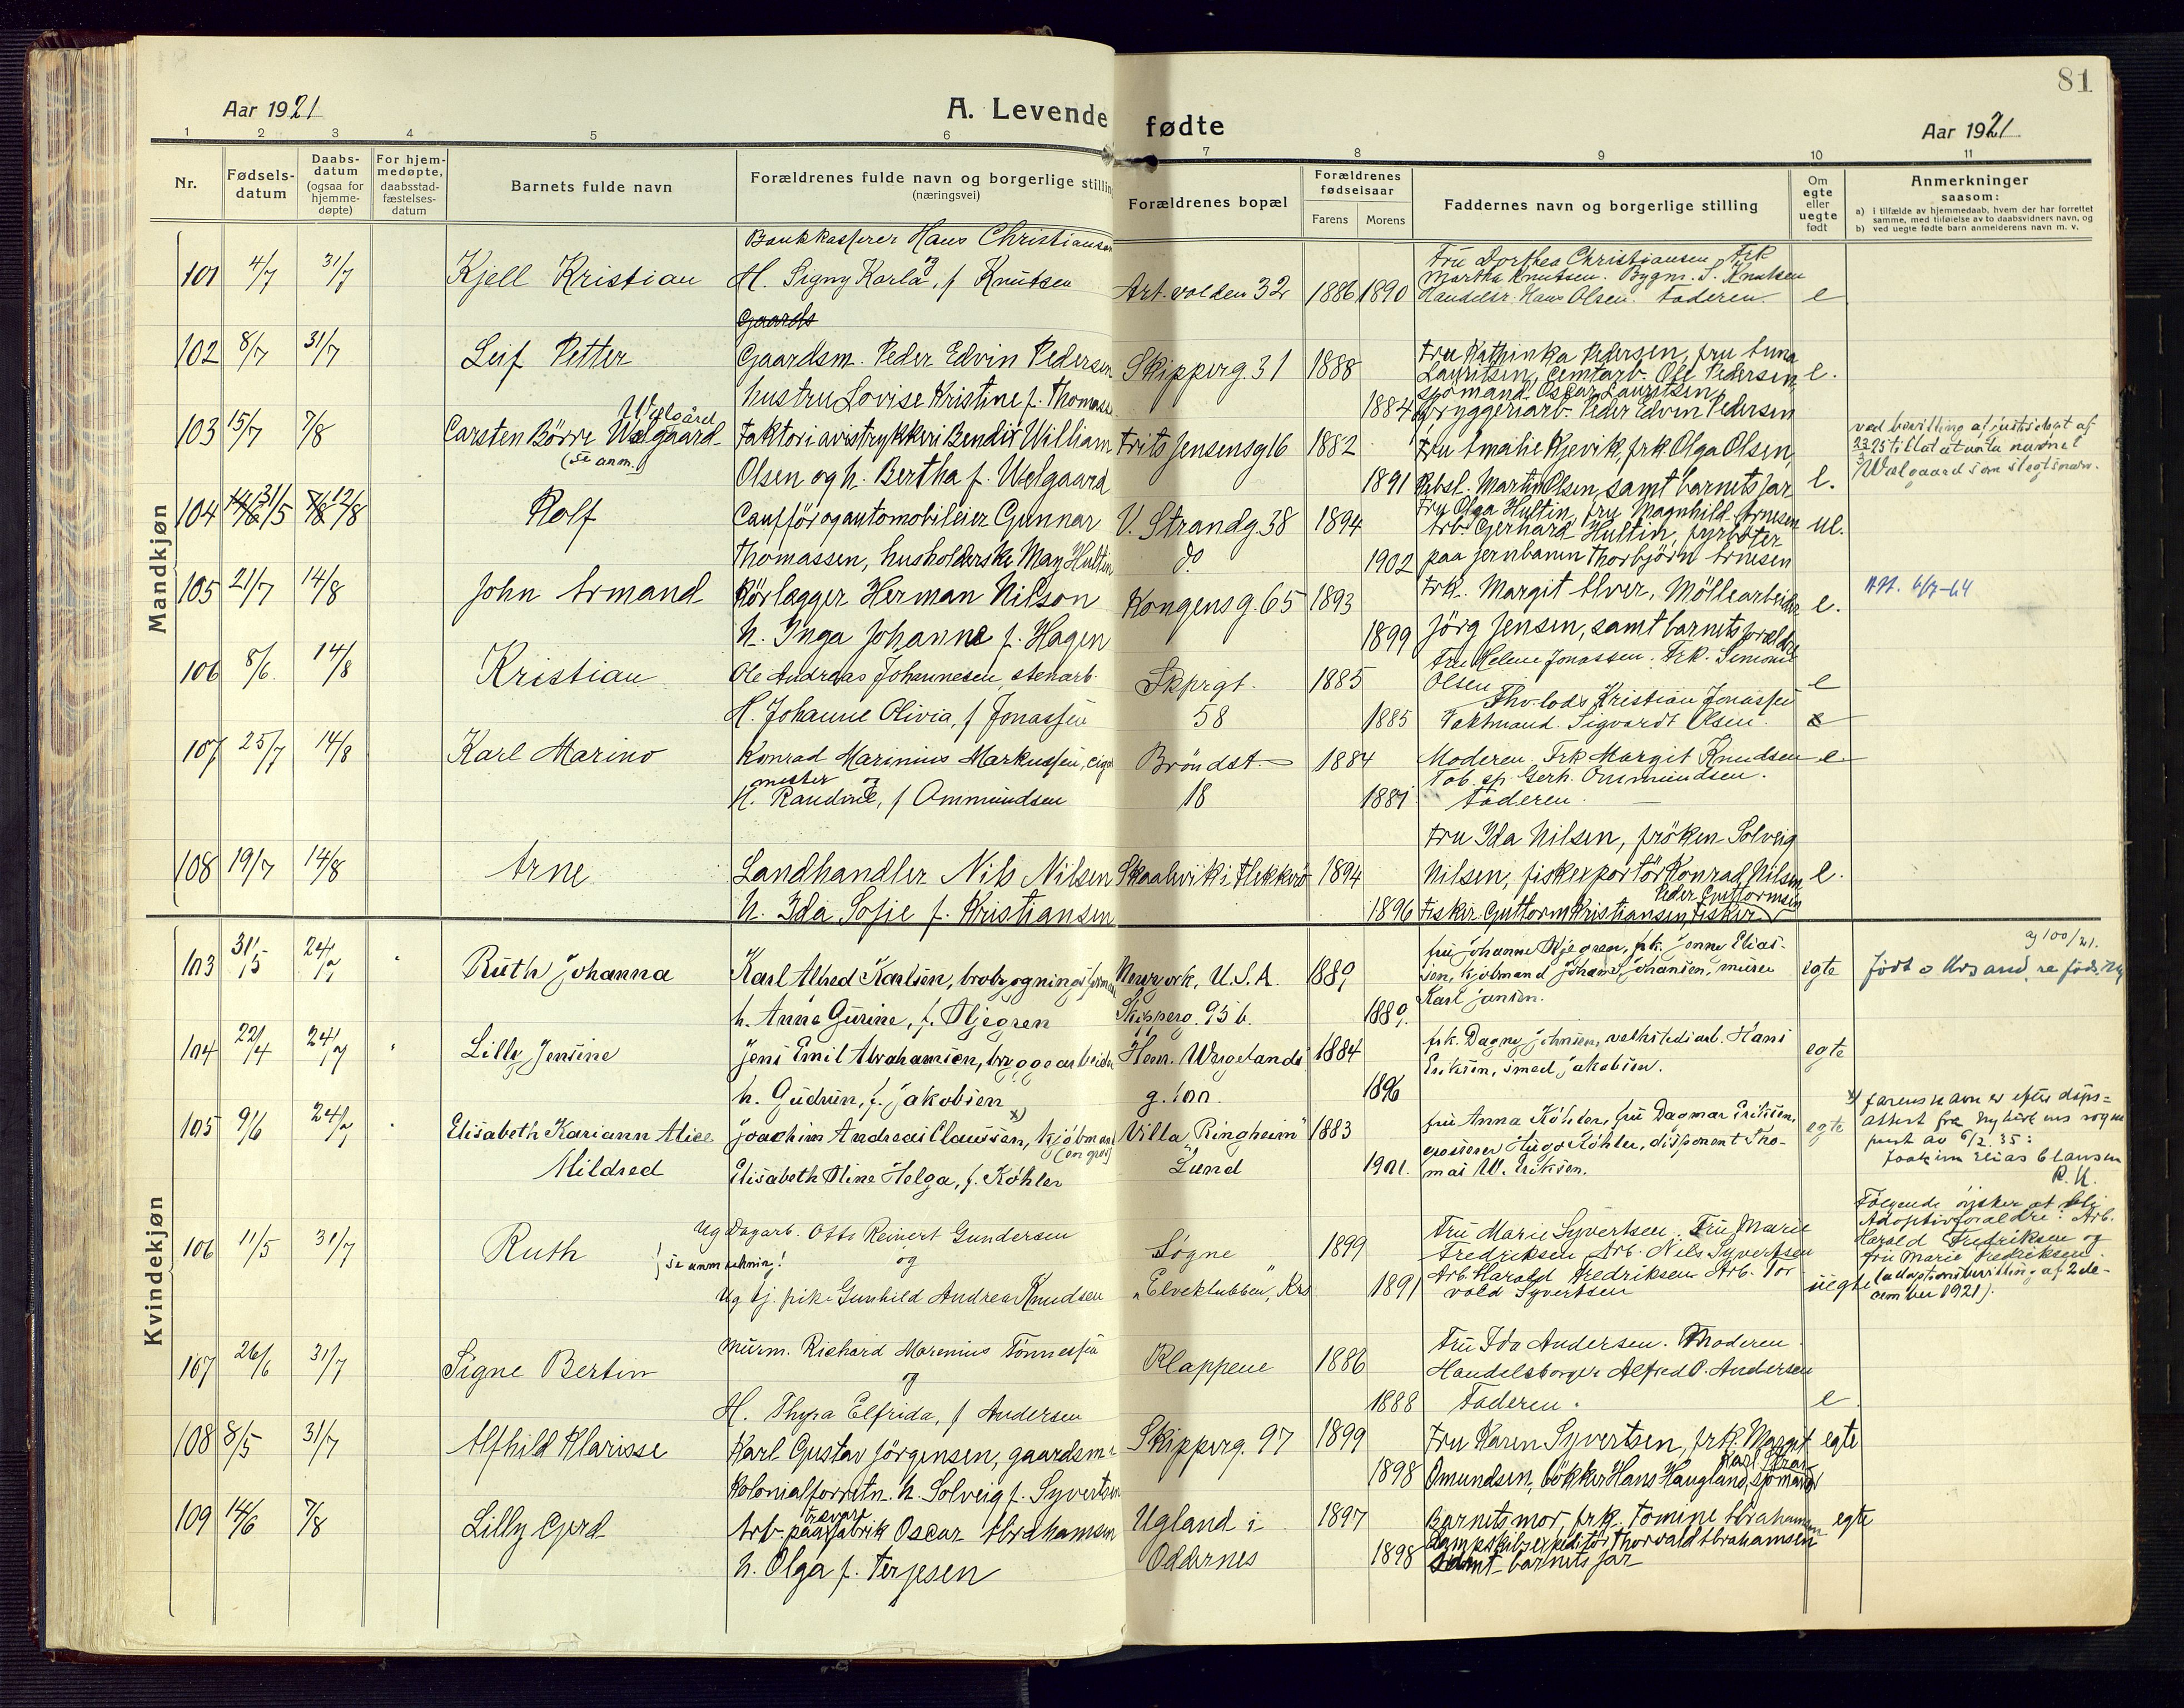 81
Aar 1921
A. Levende fødte
Aar 1921
1 2 3 4 5 6 7 8 9 10 11
Nr.
Fødsels-
datum
Daabs-
datum
(ogsaa for
hjemme-
døpte)
For hjem-
medøpte,
daabsstad-
fæstelses-
datum
Barnets fulde navn
Forældrenes fulde navn og borgerlige stilling
(næringsvei)
Forældrenes bopæl
Forældrenes
fødselsaar
Farens Morens
Faddernes navn og borgerlige stilling
Om
egte
eller
uegte
født
Anmerkninger
saasom:
a) i tilfælde av hjemmedaab, hvem der har forrettet
samme, med tilføielse av to daabsvidners navn, og
b) ved uegte fødte barn anmelderens navn m. v.
Mandkjøn
101 4/7 31/7 Kjell Kristian
Bankkasserer Hans Christiansen
og
H. Signy Karla, f Knutsen
Art. volden 32 1886 1890
Fru Dorthea Christiansen Frk
Martha Knutsen. Bygm. S. Knutsen
Handelsr. Hans Olsen. Faderen e
Gaards
102 8/7 31/7 Leif Petter
Gaardsm. Peder Edvin Pedersen
hustru Lovise Kristine f. Thomass
Skipperg. 31 1888
1884
Fru Kathinka Pedersen, fru Anna
Lauritsen, Cemtarb. Ole Pedersen, e.
sjømand Oscar Lauritsen,
bryggeriarb. Peder Edvin Pedersen
103 15/7 7/8 Carsten Börre Wælgaard
Welgård
(se anm.)
Faktor i avistrykkeri Bendix William
Olsen og h. Bertha f. Welgaard
Frits Jensensg 16 1882
1891
Fru Amalie Kjevik, frk. Olga Olsen,
Rebsl. Martin Olsen, samt barnets far e.
ved bevilling af justisdept af
23 25 tillat at anta navnet
Wælgaard som slegtsnavn.
104 31/5 12/8 Rolf
Caufför og automobileier Gunnar
Thomassen, husholderske May Hultin
V. Strandg. 38 1894
do 1902
Fru Olga Hultin, fru Magnhild Arnesen
Arb. Gerhard Hultin, fyrböter ul.
paa jernbanen Thorbjörn Arnesen
105 21/7 14/8 John Armand
Rörlægger Herman Nilson
h. Inga Johanne f. Hagen
Kongensg. 65 1893
1899
Frk. Margit Alver, Möllearbeider
Jörg Jensen, samt barnets forældre e.
106 8/6 14/8 Kristian
Ole Andreas Johannesen stenarb.
H. Johanne Olivia, f Jonassen
Skprgt. 1885
58 1885
Fru Helene Jonassen. Frk. Simonie
Olsen e
Kristian Jonassen
Vaktmand. Sigvardt Olsen.
107 25/7 14/8 Karl Marino
Konrad Marinius Markussen, cigar
mester og
H. Randine, f Ommundsen
Bröndst. 1884
18 1881
Moderen Frk Margit Knudsen e
Tob. sp. Gerh. Ommundsen.
Faderen.
108 19/7 14/8 Arne
Landhandler Nils Nilsen
h. Ida Sofie f. Kristiansen
Skaalevik i Flekkerö 1894
1896
Fru Ida Nilsen, fröken Solveig
Nilsen, fiskexportör Konrad Nilsen e.
Fisker Guttorm Kristiansen, Fisker
Peder Guttormsen
Kvindekjøn
103 31/5 24/7 Ruth Johanna
Karl Alfred Karlsen, brobygningsforman
h. Anna Gurine, f. Stjegren
Newyork, U.S.A. 1889
Skipperg. 95 b. 1889.
fru Johanne Stjegren, frk. Jenny Elias-
sen, kjøbmand Johans Johansen, murer
Karl Jansen. egte
100/21.
født
104 22/4 24/7 Lilly Jensine
Jens Emil Abrahamsen, bryggearbeider
h. Gudrun, f. Jakobsen
Hen. Wergelands 1884
g. 100. 1896
frk. Dagny Johnsen, verkstedarb. Hans
Eriksen, smed Jakobsen. egte
105 9/6 24/7 Elisabeth Kariann Alice
Mildred
Joachim Andreas Claussen, x) kjöbmand
(en gros)
Elisabeth Stine Helga, f. Köhler
Villa "Ringheim" 1883
Lund 1901.
fru Anna Köhler, fru Dagmar Eriksen,
grosserer Hugo Köhler, disponent Tho-
mas W. Eriksen. egte
x) farens navn er efter dåps-
attest fra
prest av 6/2 35:
Joakim Elias Clausen
R. K.
106 11/5 31/7 Ruth
Ug Dagarb. Otto Reinert Gundersen
} se anmerkning! og
Ug tj. pike Gunhild Andrea Knudsen
Søgne 1899
"Elveklubben", Krs 1891
Fru Marie Syvertsen. Fru Marie
Fredriksen Arb. Nils Syvertsen
Arb. Harald Fredriksen Arb. Tor
vald Syvertsen uegte
Følgende ønsker at bli
Adoptivforældre: Arb.
Harald Fredriksen og
fru Marie Fredriksen.
(adoptionsbevilling af 2 de-
cember 1921).
107 26/6 31/7 Signe Bertin
Murm. Richard Marenius Tønnessen
og
H. Thyra Elfrida, f Andersen
Klappene 1886
1888
Fru Ida Andersen. Moderen.
Handelsborger Alfred O. Andersen
Faderen. e
108 8/5 31/7 Alfhild Klarisse
Karl Gustav Jörgensen, gaardsm.
Kolonialforretn. h. Solveig f. Syvertsen
Skipperg. 97 1899
1898
Fru Karen Syvertsen, frk. Margit egte
Omundsen, bökker Hans Haugland, sjömand
109 14/6 7/8 Lilly Gerd
Arb. paa fabrik Oscar Abrahamsen
h. Olga f. Terjesen
Ugland i 1897
Oddernes 1898
Barnets mor, frk. Tomine Abrahamsen egte
Dampskibsexpeditör Thorvald Abrahamsen
samt barnets far